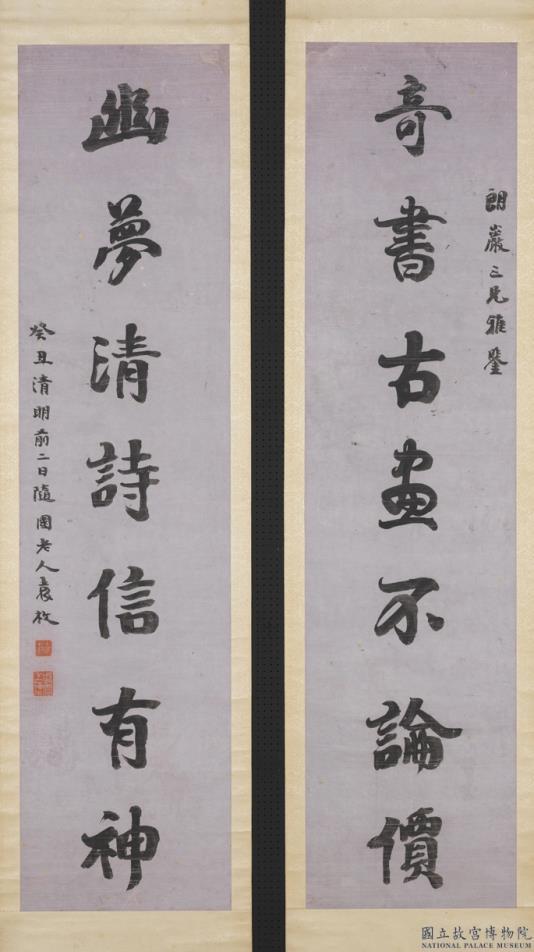 朗巖三兄雅鑒
奇書古畫不論價
幽夢清詩信有神
癸丑清明前二日隨園老人袁枚
國立故宮博物院
NATIONAL PALACE MUSEUM